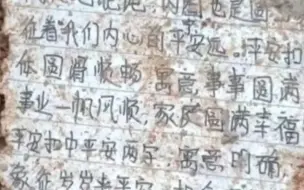 也是圆
征着我们内心的平安远。平安扣
体圆滑顺畅 寓意,事事圆满
事业一帆风顺,家庭圆满幸福
平安扣中平安两字,寓意明确
象征岁岁平安